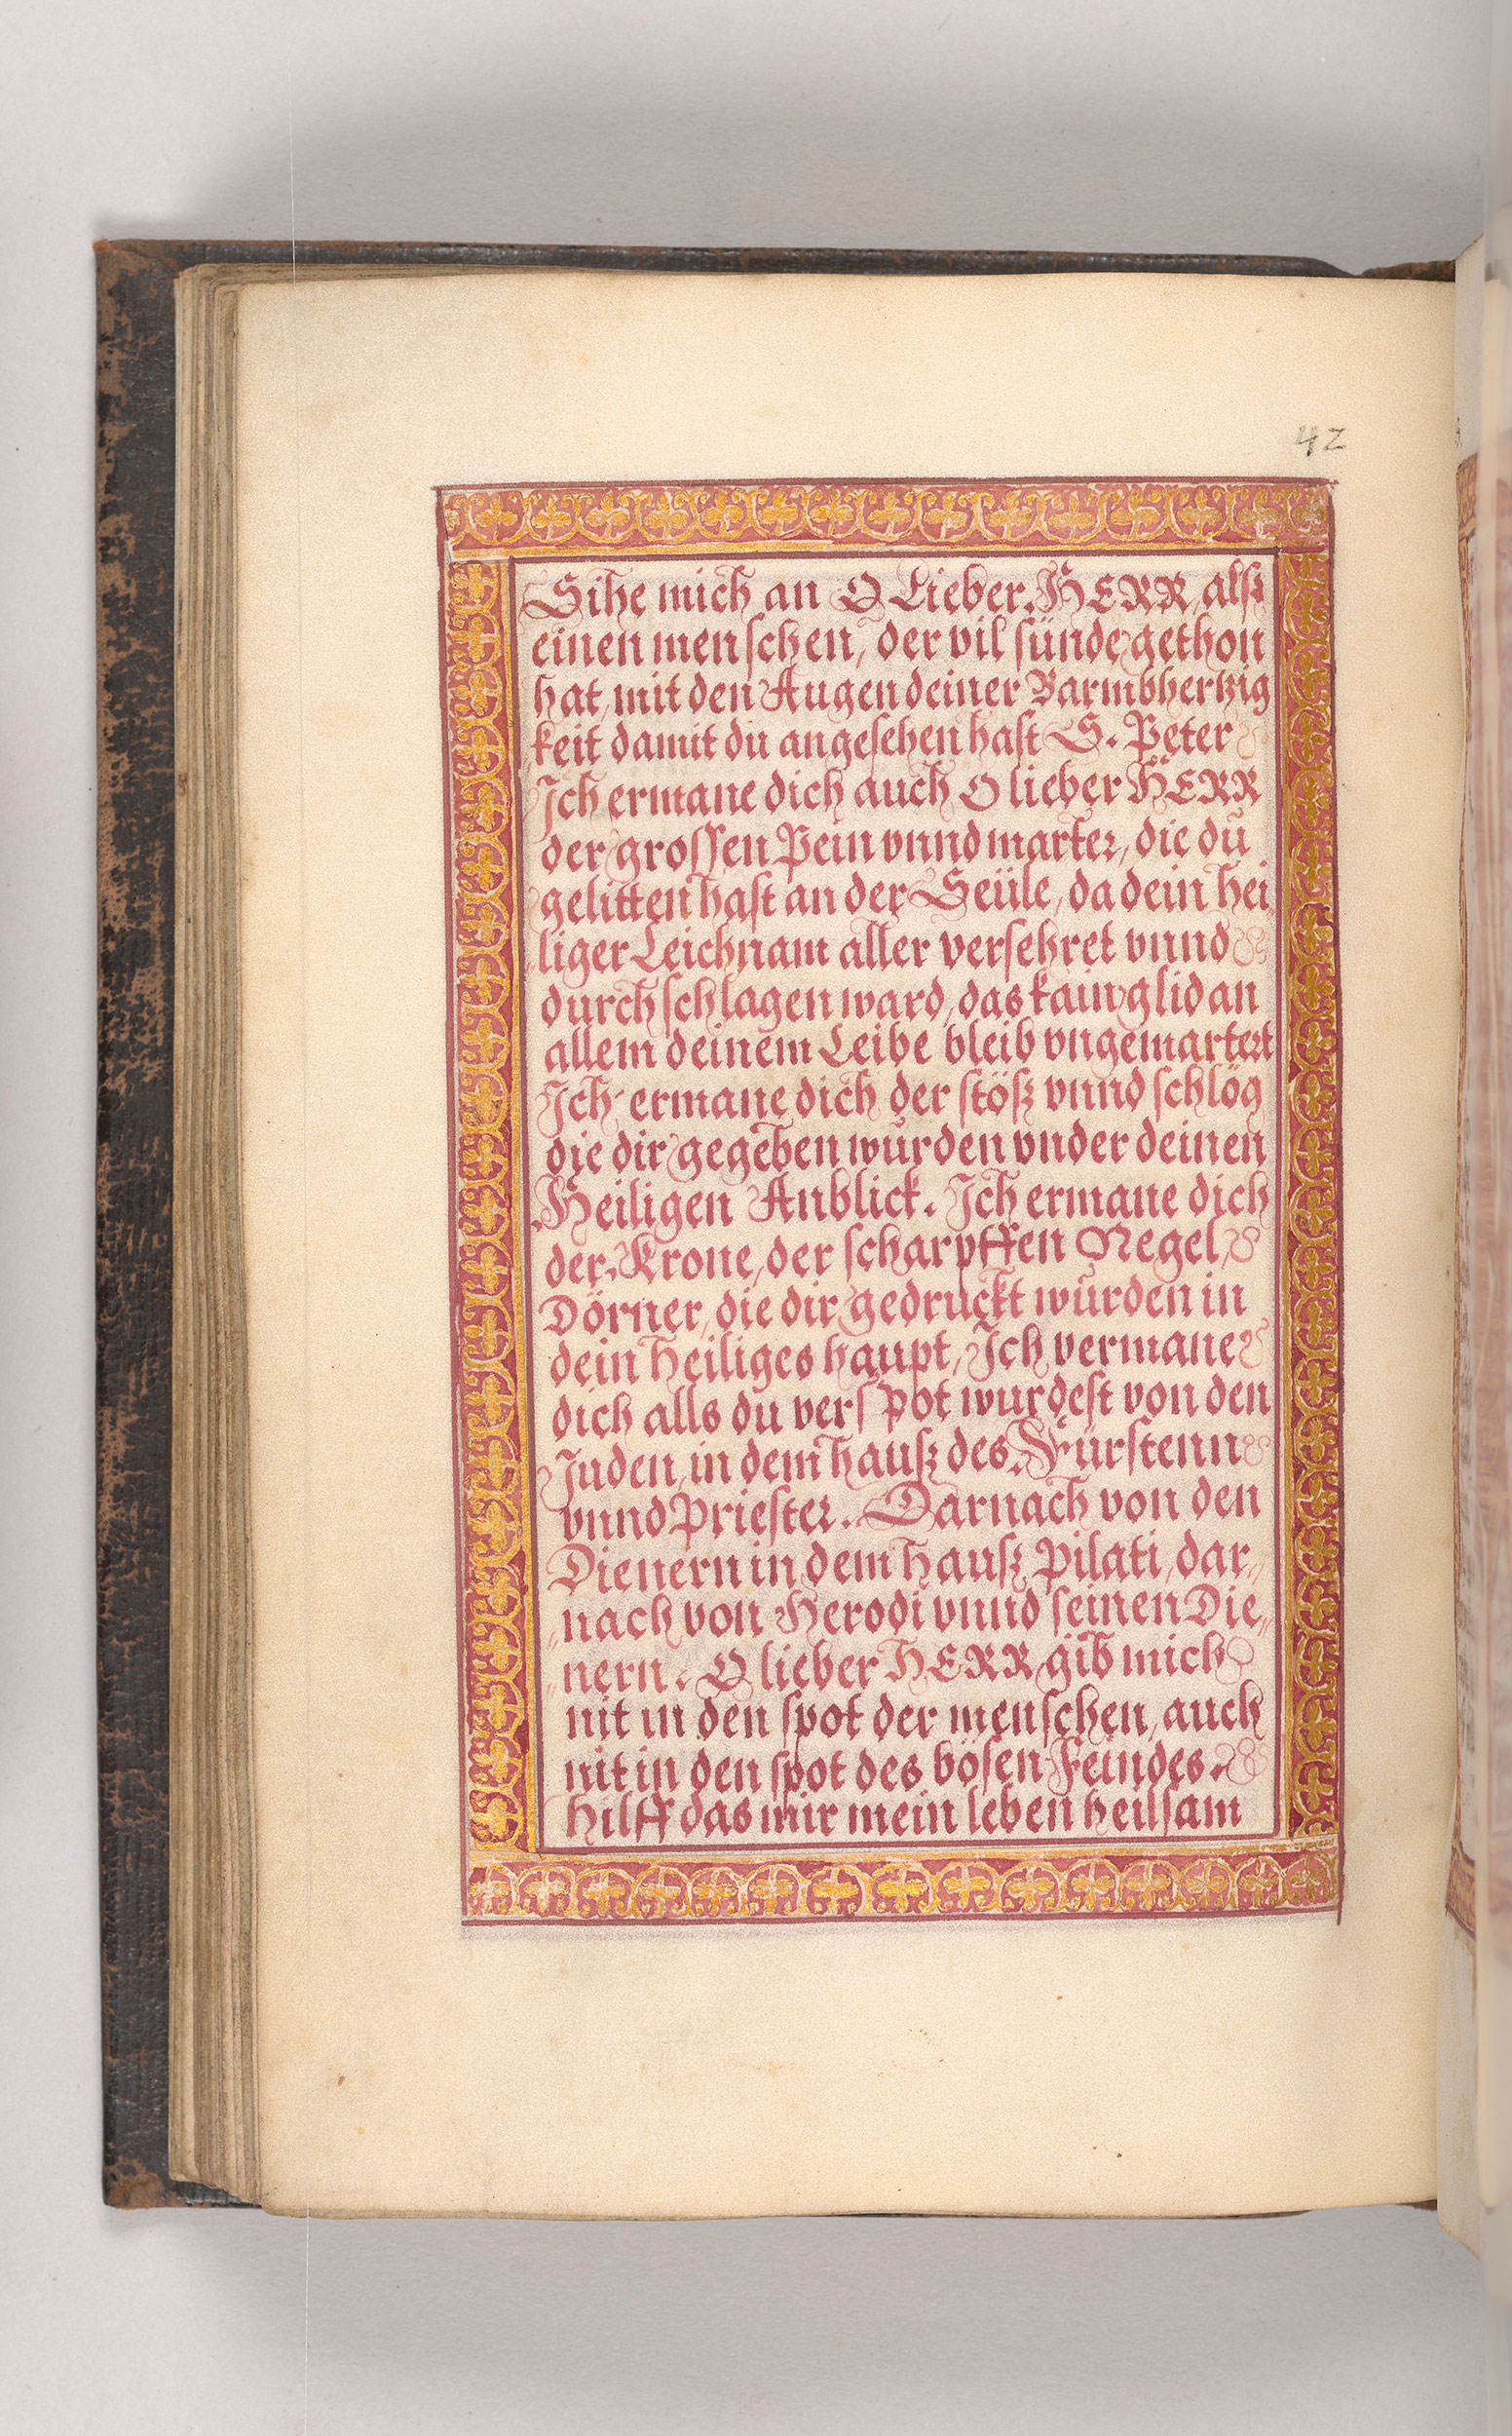 42
Sihe mich an O Lieber HERR, alß
einen menschen, der vil sünde gethon
hat, mit den Augen deiner Barmbhertzig
keit damit du angesehen hast S. Peter
Ich ermane dich auch O lieber HERR
der grossen Pein vnnd marter, die dů
gelitten hast an der Seüle, da dein hei
liger Leichnam aller versehret vnnd
durch schlagen ward, das kain glid an
allem deinem Leibe bleib vngemartert
Ich ermane dich der stöß vnnd schlög
die dir gegeben wurden vnder deinen
Heiligen Anblick. Ich ermane dich
der Krone, der scharpffen Negel,
Dörner, die dir gedruckt wurden in
dein heiliges haupt, Ich vermane
dich alls du verspot wurdest von den
Juden, in dem hauß des Fürstenn
vnnd Priester. Darnach von den
Dienern in dem hauß Pilati, dar-
nach von Herodi vnnd seinen Die-
nern. O lieber HERR gib mich
nit in den spot der menschen, auch
nit in den spot des bösen Feindes.
Hilff das mir mein leben heilsam